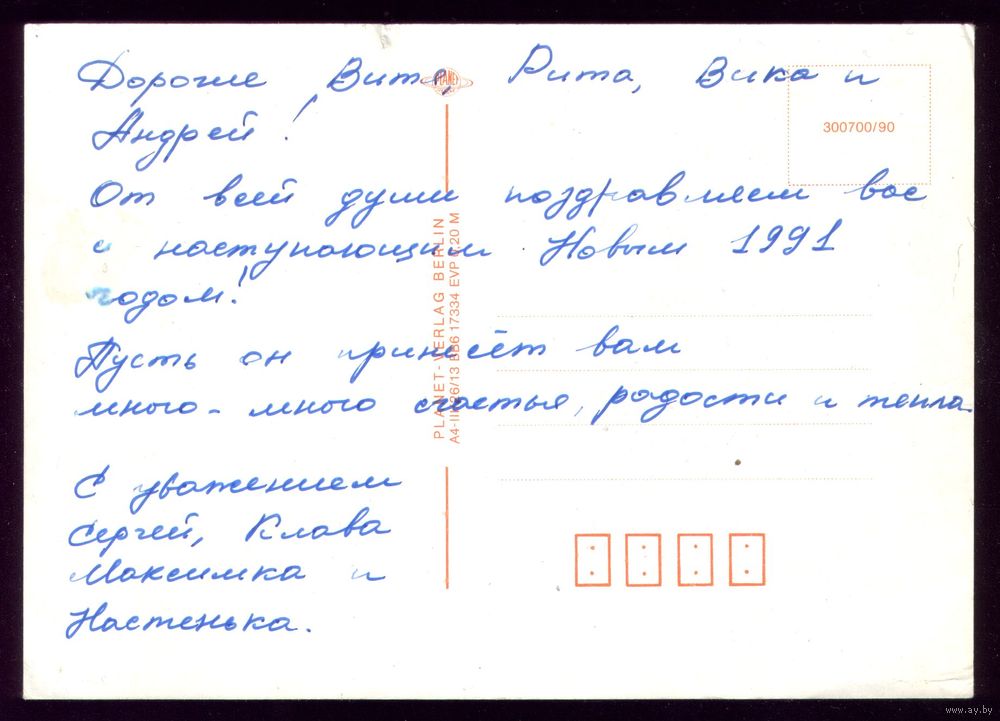 Дорогие Витя, Рита, Вика и
Андрей!
От всей души поздравляем вас
с наступающим Новым 1991
годом!
Пусть он принесёт вам
много-много счастья, радости и тепла.
С уважением
Сергей, Клава
Максимка и
Настенька.
PLANET
300700/90
PLANET-VERLAG BERLIN
EVP 0,20 M
www.ay.by